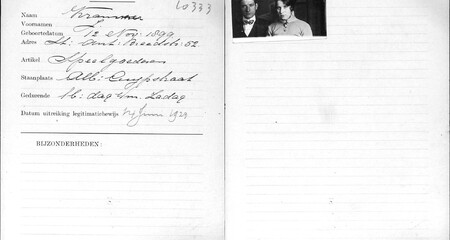 60333
Naam Krammer
Voornamen
Geboortedatum 12 Nov: 1899
Adres St. Ant: Breedstr: 52
Artikel Speelgoederen
Staanplaats Alb: Cuypstraat
Gedurende M: dag t/m Zadag
Datum uitreiking legitimatiebewijs Juni 1929
BIJZONDERHEDEN: